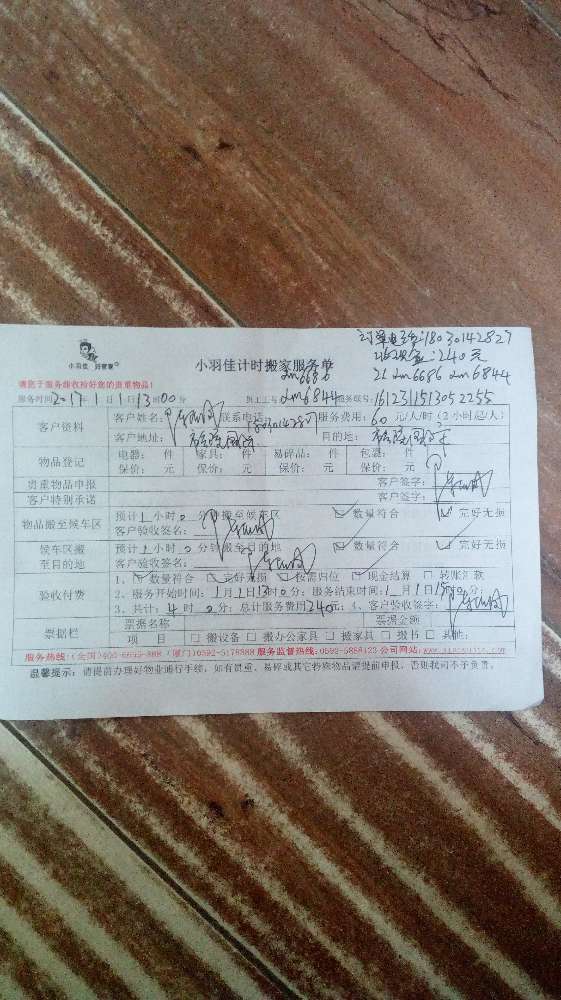 订单电话:18030142827
收现金:240元
小羽佳 好管家
小羽佳计时搬家服务单
2m6686 2m6844
请您于服务前收拾好您的贵重物品!
服务时间:2017年1月1日13时00分 员工工号 2m6686 2m6844 服务账号:161231513052255
客户资料 客户姓名: 联系电话: 服务费用:60元/人/时(2小时起/人)
客户地址: 目的地:
物品登记 电器: 件 家具: 件 易碎品: 件 包裹: 件
保价: 元 保价: 元 保价: 元 保价: 元
贵重物品申报 客户签字:
客户特别承诺 客户签字:
物品搬至候车区 预计1小时0分钟搬至候车区 数量符合 完好无损
客户验收签名:
候车区搬至目的地 预计1小时0分钟搬至目的地 数量符合 完好无损
客户验收签名:
验收付费 1、数量符合 完好无损 按需归位 现金结算 转账汇款
2、服务开始时间:1月1日13时0分;服务结束时间:1月1日15时0分;
3、共计:4时0分;总计服务费用240元;4、客户验收签字:
票据栏 票据名称 票据金额
项 目 搬设备 搬办公家具 搬家具 搬书 其他:
服务热线:(全国)400-6699-888 (厦门)0592-5178888 服务监督热线:0592-5888123 公司网站:
温馨提示:请提前办理好物业通行手续,如有贵重、易碎或其它特殊物品请提前申报,否则我司不予负责。